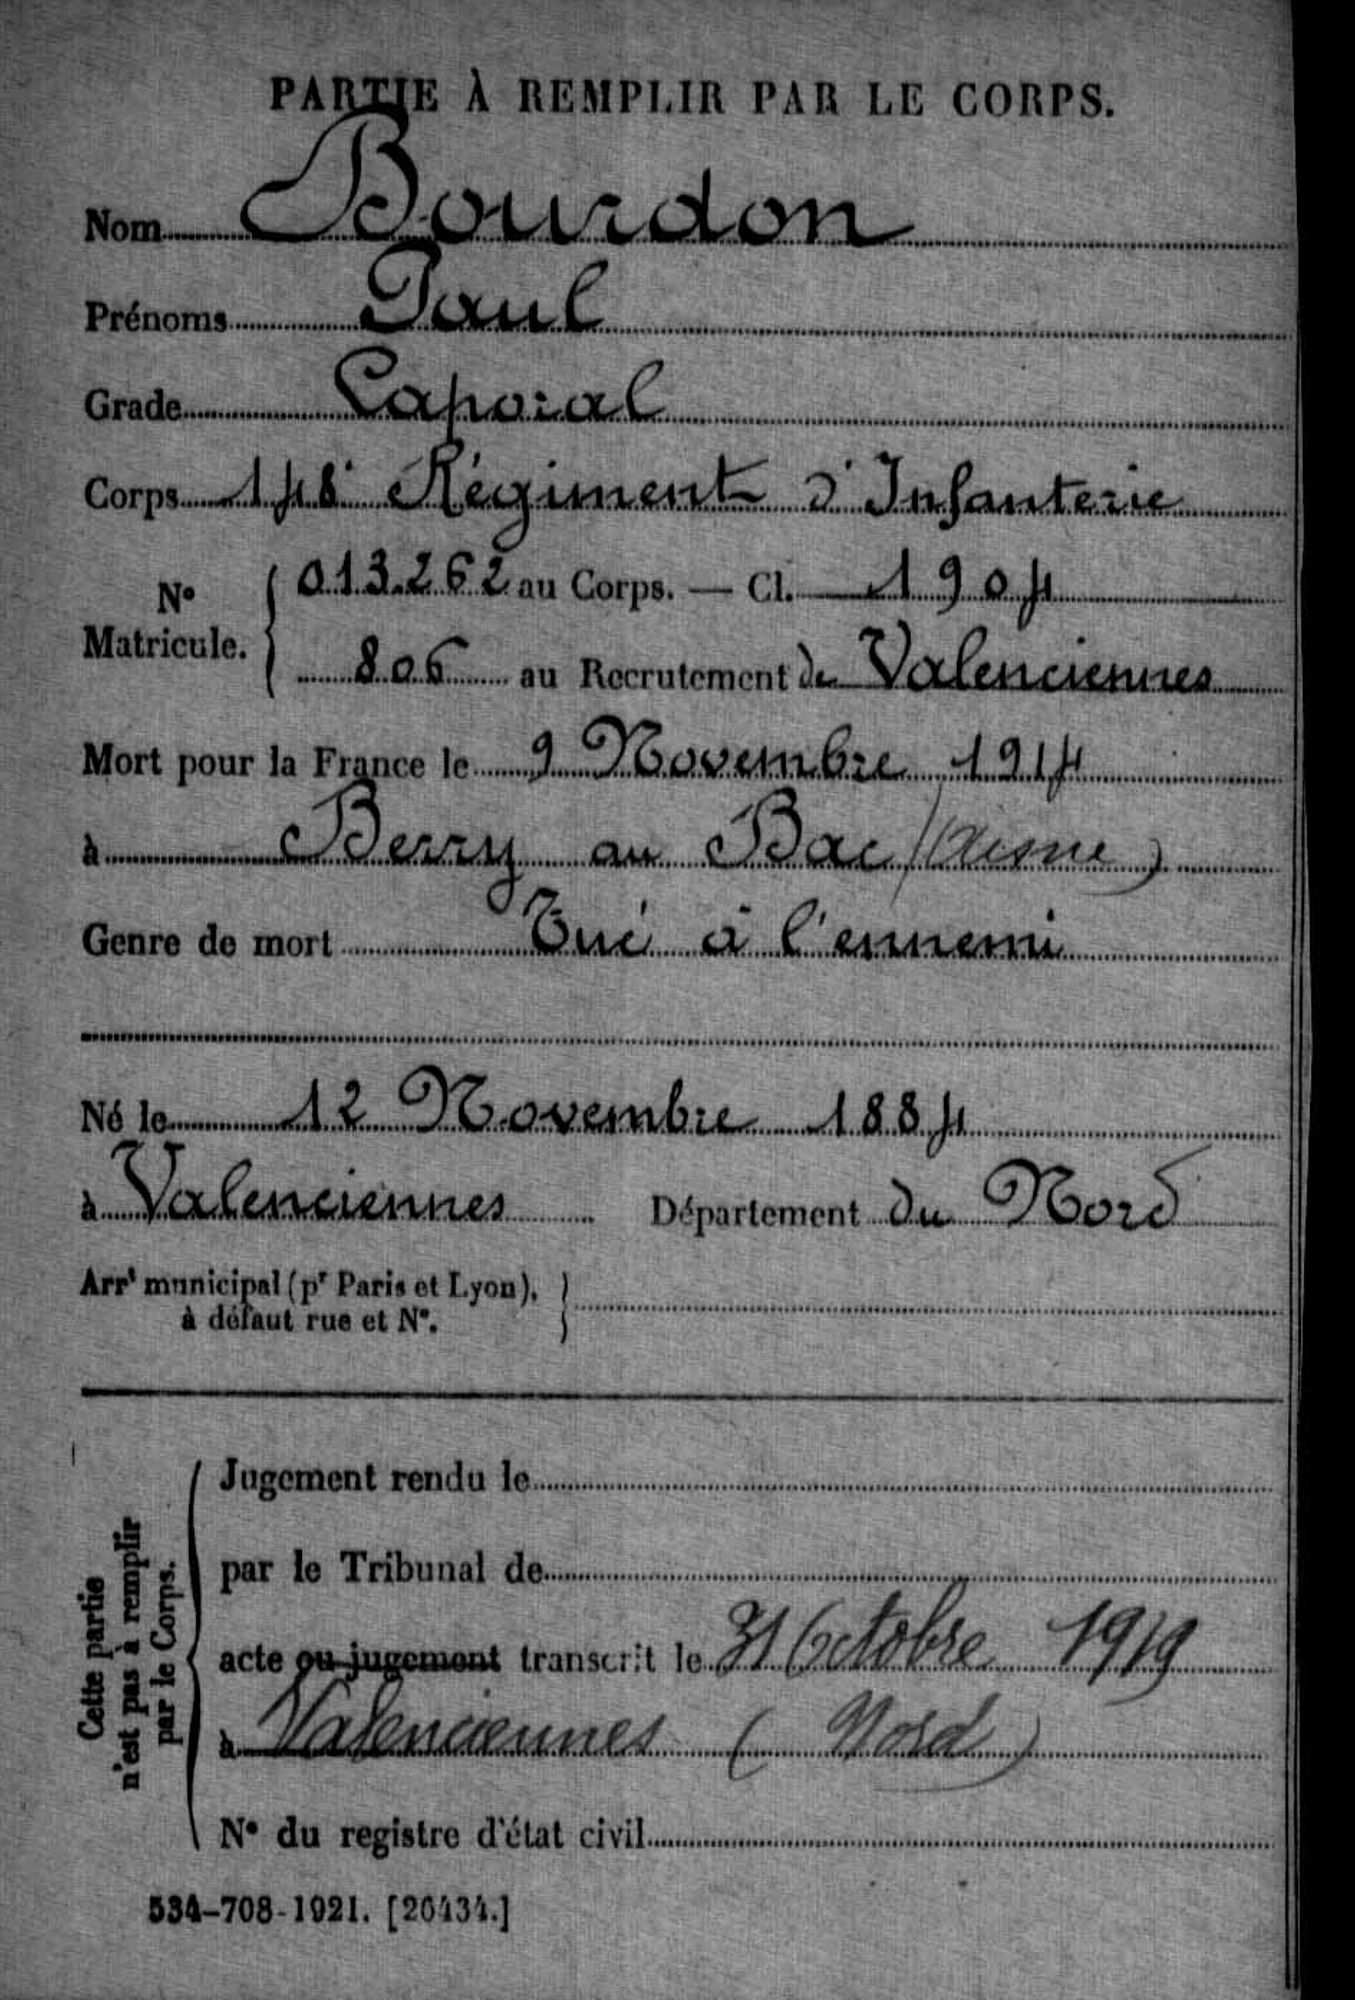 PARTIE À REMPLIR PAR LE CORPS.
Nom Bourdon
Prénoms Paul
Grade Caporal
Corps 148e Régiment d'Infanterie
N° Matricule. 013.262 au Corps. — Cl. 1904
806 au Recrutement de Valenciennes
Mort pour la France le 9 Novembre 1914
à Berry au Bac (Aisne)
Genre de mort Tué à l'ennemi
Né le 12 Novembre 1884
à Valenciennes Département du Nord
Arrt municipal (pr Paris et Lyon),
à défaut rue et N°.
Cette partie
n'est pas à remplir
par le Corps.
Jugement rendu le
par le Tribunal de
acte ou jugement transcrit le 31 Octobre 1919
à Valenciennes (Nord)
N° du registre d'état civil
534-708-1921. [26434.]